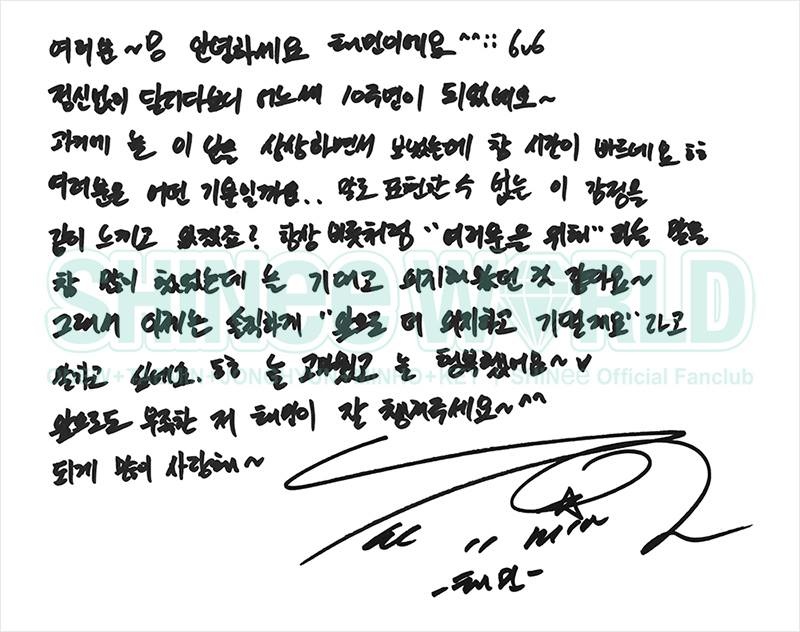 여러분~♡ 안녕하세요 태민이에요^^:: 6v6
정신없이 달리다보니 어느새 10주년이 되었네요~
과거에 늘 이 날을 상상하면서 보냈는데 참 시간이 빠르네요 ㅎㅎ
여러분은 어떤 기분일까요.. 말로 표현할 수 없는 이 감정을
같이 느끼고 있겠죠? 항상 버릇처럼 "여러분을 위해" 라는 말을
참 많이 했었는데 늘 기대고 의지해 왔던 것 같아요~
그래서 이제는 솔직하게 "앞으로 더 의지하고 기댈게요"라고
말하고 싶네요. ㅎㅎ 늘 고마웠고 늘 행복했어요~♥
앞으로도 부족한 저 태민이 잘 챙겨주세요~^^
되게 많이 사랑해~
Tae min
-태민-
SHINee WORLD
ONEW+TAEMIN+JONGHYUN+MINHO+KEY | SHINee Official Fanclub